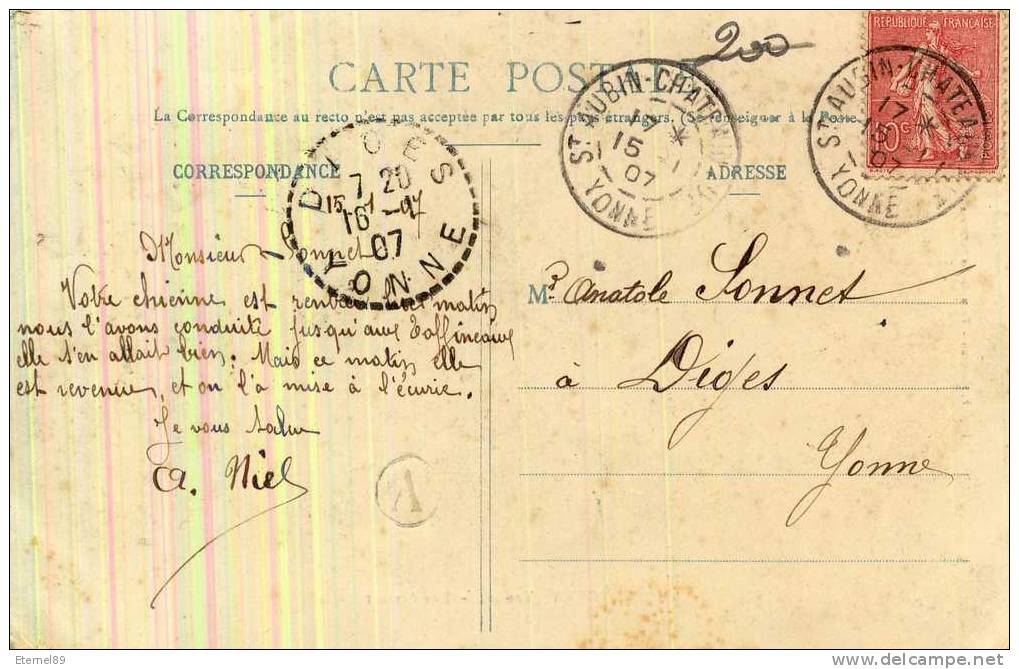 200
CARTE POSTALE
La Correspondance au recto n'est pas acceptée par tous les pays étrangers. (Se renseigner à la Poste
CORRESPONDANCE
ADRESSE
REPUBLIQUE FRANÇAISE
10 c
POSTES
ST AUBIN-CHATEAU
17 *
15 - 1
07
YONNE
ST AUBIN-CHATEAU
17 *
15
07
YONNE
DIGES
7 20
16 - 1
07
YONNE
15-1-07
Monsieur Sonnet
Votre chienne est rentrée ce matin
nous l'avons conduite jusqu'aux
elle s'en allait bien. Mais ce matin elle
est revenue, et on l'a mise à l'écurie.
Je vous salue
A. Niel
Mr Anatole Sonnet
à Diges
Yonne
Eternel89
www.delcampe.net